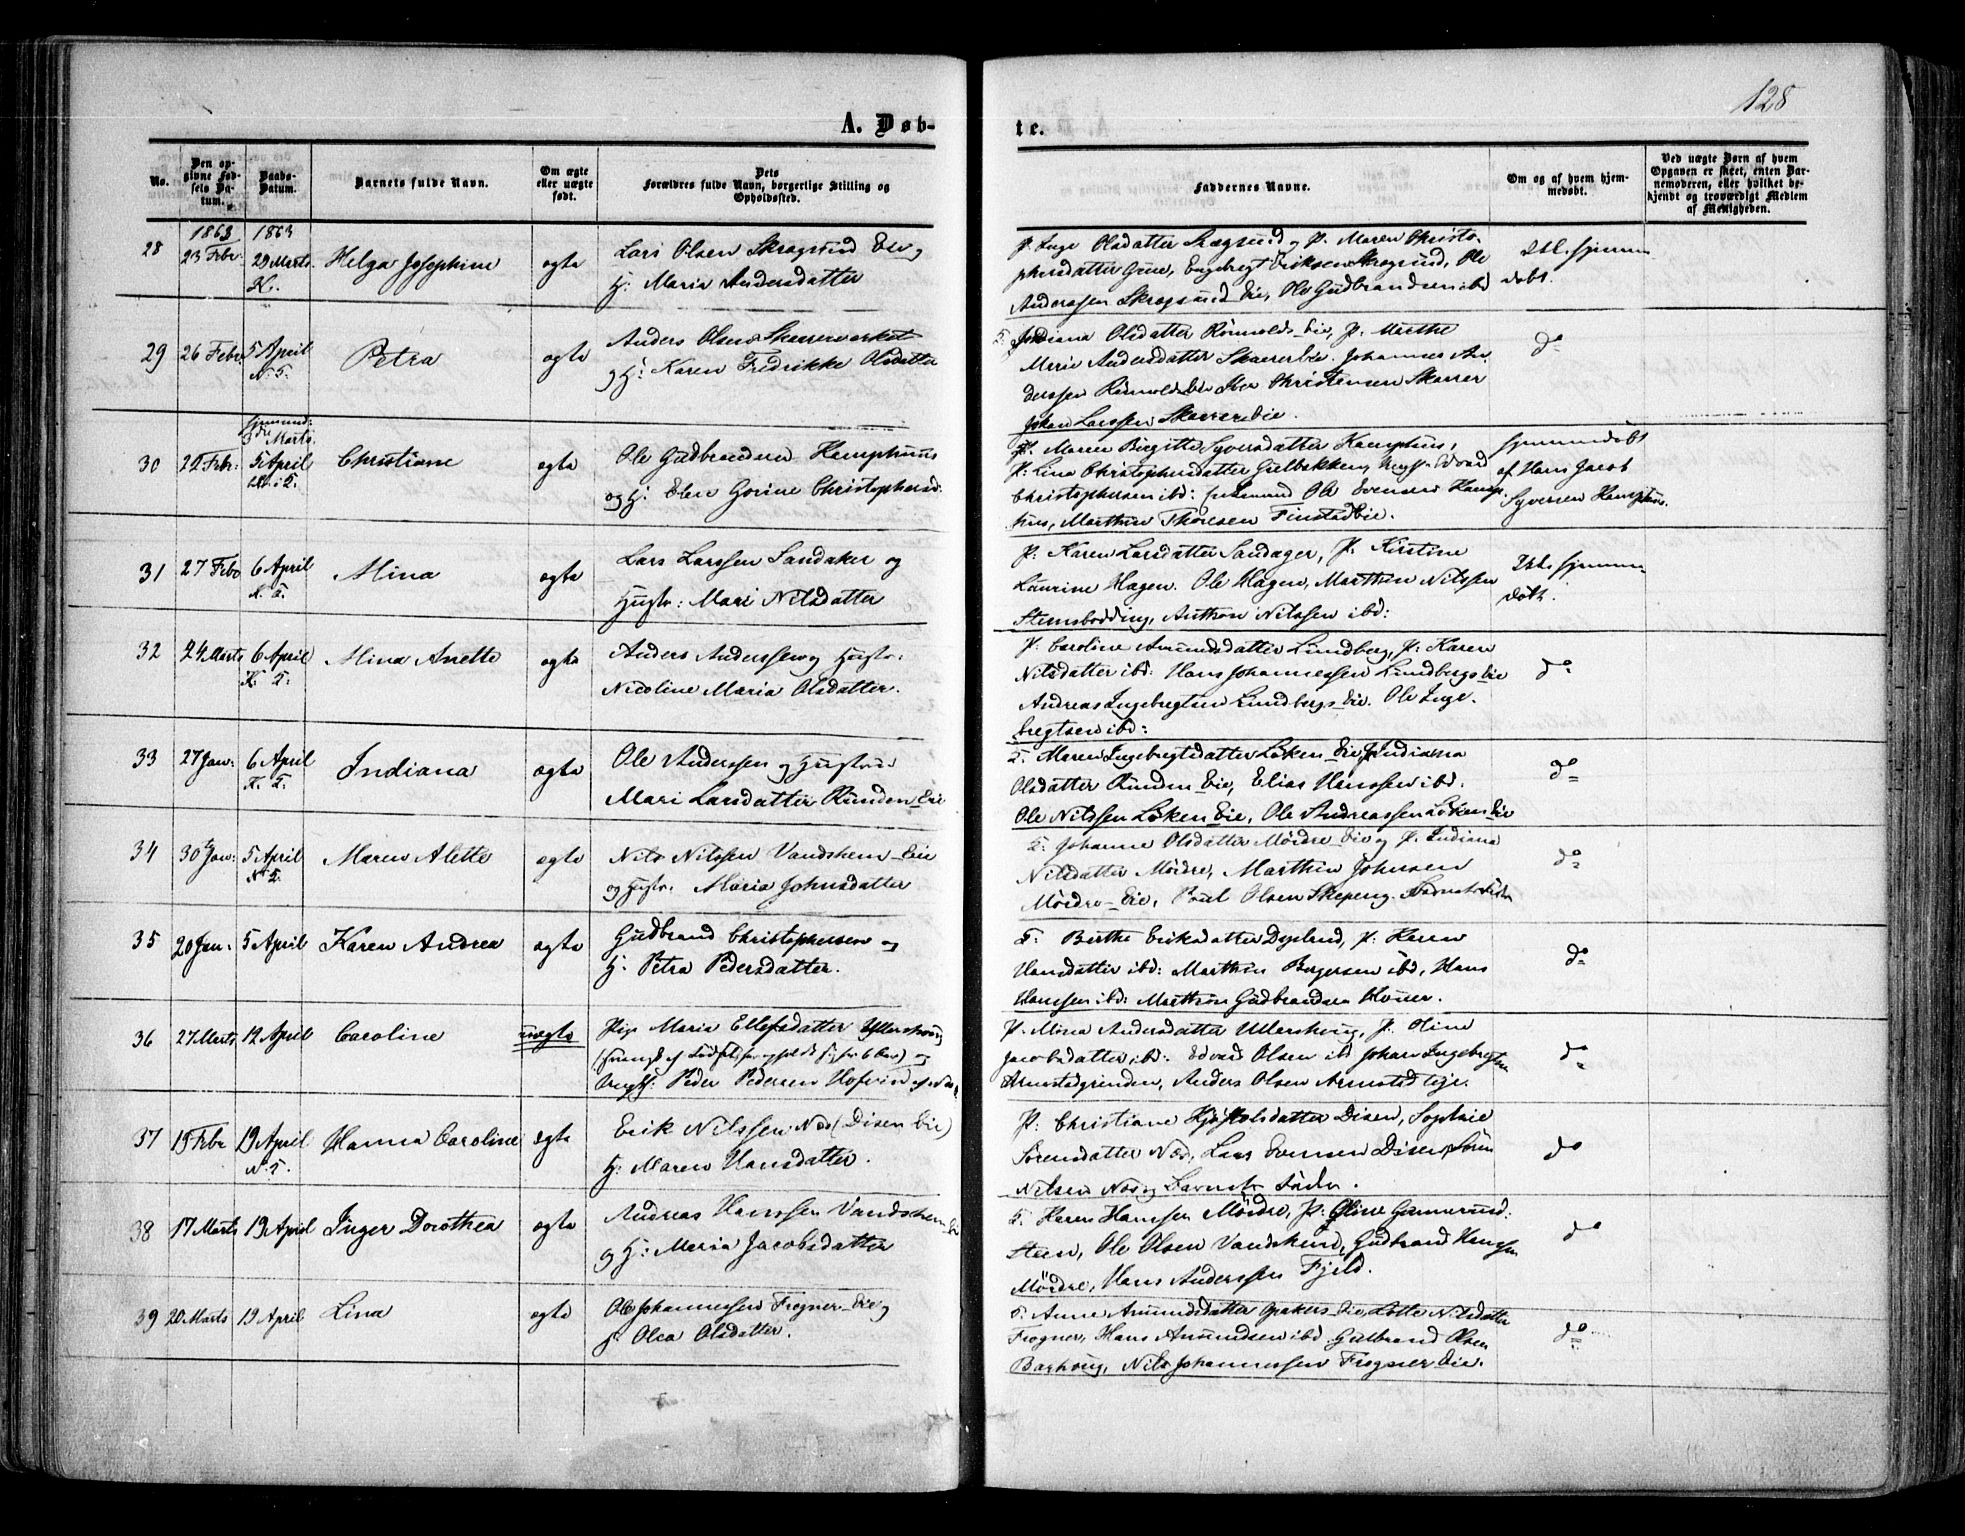 128
A. Døb-
te.
No.
Den op-
givne Fød-
sels Da-
tum.
Daabs-
Datum.
Barnets fulde Navn.
Om ægte
eller uægte
født.
Dets
Forældres fulde Navn, borgerlige Stilling og
Opholdssted.
Faddernes Navne.
Om og af hvem hjem-
medøbt.
Ved uægte Børn af hvem
Opgaven er skeet, enten Bar-
nemoderen, eller hvilket be-
kjendt og troværdigt Medlem
af Menigheden.
1863 1863
28 23 Febr. 29 Marts Helga Josephine ægte Lars Olsen Skragsund Eie og
H: Maria Andersdatter
P. Inge Olsdatter Skragsund og P. Maren Christo-
phersdatter Engebregt Eriksen Skragsund, Ole
Anderssen Skragsund Eie, Ole Gudbrandsen ibd
Ikke hjemme
døbt.
29 26 Febr 5 April Petra ægte Anders Olsen Skarerværket
og H: Karen Fredrikke Olsdatter
Indiana Olsdatter Rømolds Eie, P. Marthe
Marie Andersdatter Skarer Eie. Johannes An-
derssen Rømolds Eie Christensen Skarrer
Johan Larssen Skarrer Eie.
do
hjemmed:
3die Marts
30 22 Febr: 5 April Christiane ægte Ole Gudbrandsen Kamphuus
og H: Elen Gorine Christophersd:
P. Maren Birgitte Syversdatter Kamphus,
P. Lina Christophersdatter Edvard
Christophersen ibd: Ole Evensen Kamp-
hus, Marthin Thoresen Finstad Eie.
hjemmedøbt
af Hans Jacob
Syversen Kamphus.
31 27 Febr 6 April Mina ægte Lars Larssen Sandaker og
Hustr: Mari Nilsdatter
P: Karen Larsdatter Sandager, P. Kirstine
Laurine Hagen. Ole Hagen, Marthin Nilssen
Stensbødding, Anthon Nilssen ibd:
Ikke hjemme
døbt.
32 24 Marts 6 April Mina Anette ægte Anders Anderssen og Hustr:
Nicoline Maria Olsdatter.
P. Caroline Amundsdatter Lundberg, P. Karen
Nilsdatter ibd: Hans Johannessen Lundbergs Eie
Andreas Ingebregtsen Lundbergs Eie. Ole Inge-
bregtsen ibd:
do
33 27 Jan: 6 April Indiana ægte Ole Anderssen og Hustru:
Mari Larsdatter Runden Eie
Maren Ingebregtsdatter Løken Eie, P. Indiana
Olsdatter Runden Eie, Elias Hanssen ibd.
Ole Nilssen Løken Eie, Ole Andreassen Løken Eie
do
34 30 Jan: 5 April Maren Alette ægte Nils Nilssen Vandshem Eie
og Hustr. Maria Johnsdatter
Johanne Olsdatter Mördre Eie og P. Indiana
Nilsdatter Mördre, Marthin Johnsen
Mördre Eie, Poul Olsen Skepeng.
do
35 20 Jan: 5 April Karen Andrea ægte Gudbrand Christophersen og
H. Petra Pedersdatter.
Berthe Eriksdatter P. Karen
Hansdatter ibd: Marthin Bergersen ibd, Hans
Hanssen ibd: Marthin Gudbrandsen
do
36 27 Marts 12 April Caroline uægte Pige Maria Ellefsdatter
Ungk: Peder Pedersen Hofvin
P. Mina Andersdatter Ullershoug, P. Oline
Jacobsdatter ibd: Edvard Olsen ibd Johan Ingebregtsen
Arnestadgrinden, Anders Olsen Arnestad
do
37 15 Febr 19 April Hanna Caroline ægte Erik Nilssen Næs (Disen Eie)
H: Maren Hansdatter.
P: Christiane Disen, Sophie
Sörensdatter Næs, Lars Evensen Disen, Sören
Nilsen Næs og Barnets Fader.
do
38 17 Marts 19 April Inger Dorothea ægte Andreas Hanssen Vandshem Eie
og H: Maria Jacobsdatter
Karen Hanssen Mördre, P: Oline
Steen, Ole Olsen Gudbrand Hanssen
Mördre, Hans Anderssen Fjeld.
do
39 20 Marts 19 April Lina ægte Ole Johannessen Frogner Eie og
H. Olea Olsdatter.
Anne Amundsdatter Opakers Eie, Lotte Nilsdatter
Frogner, Hans Amundsen ibd Gulbrand Olsen
Nils Johannessen Frogner Eie.
do